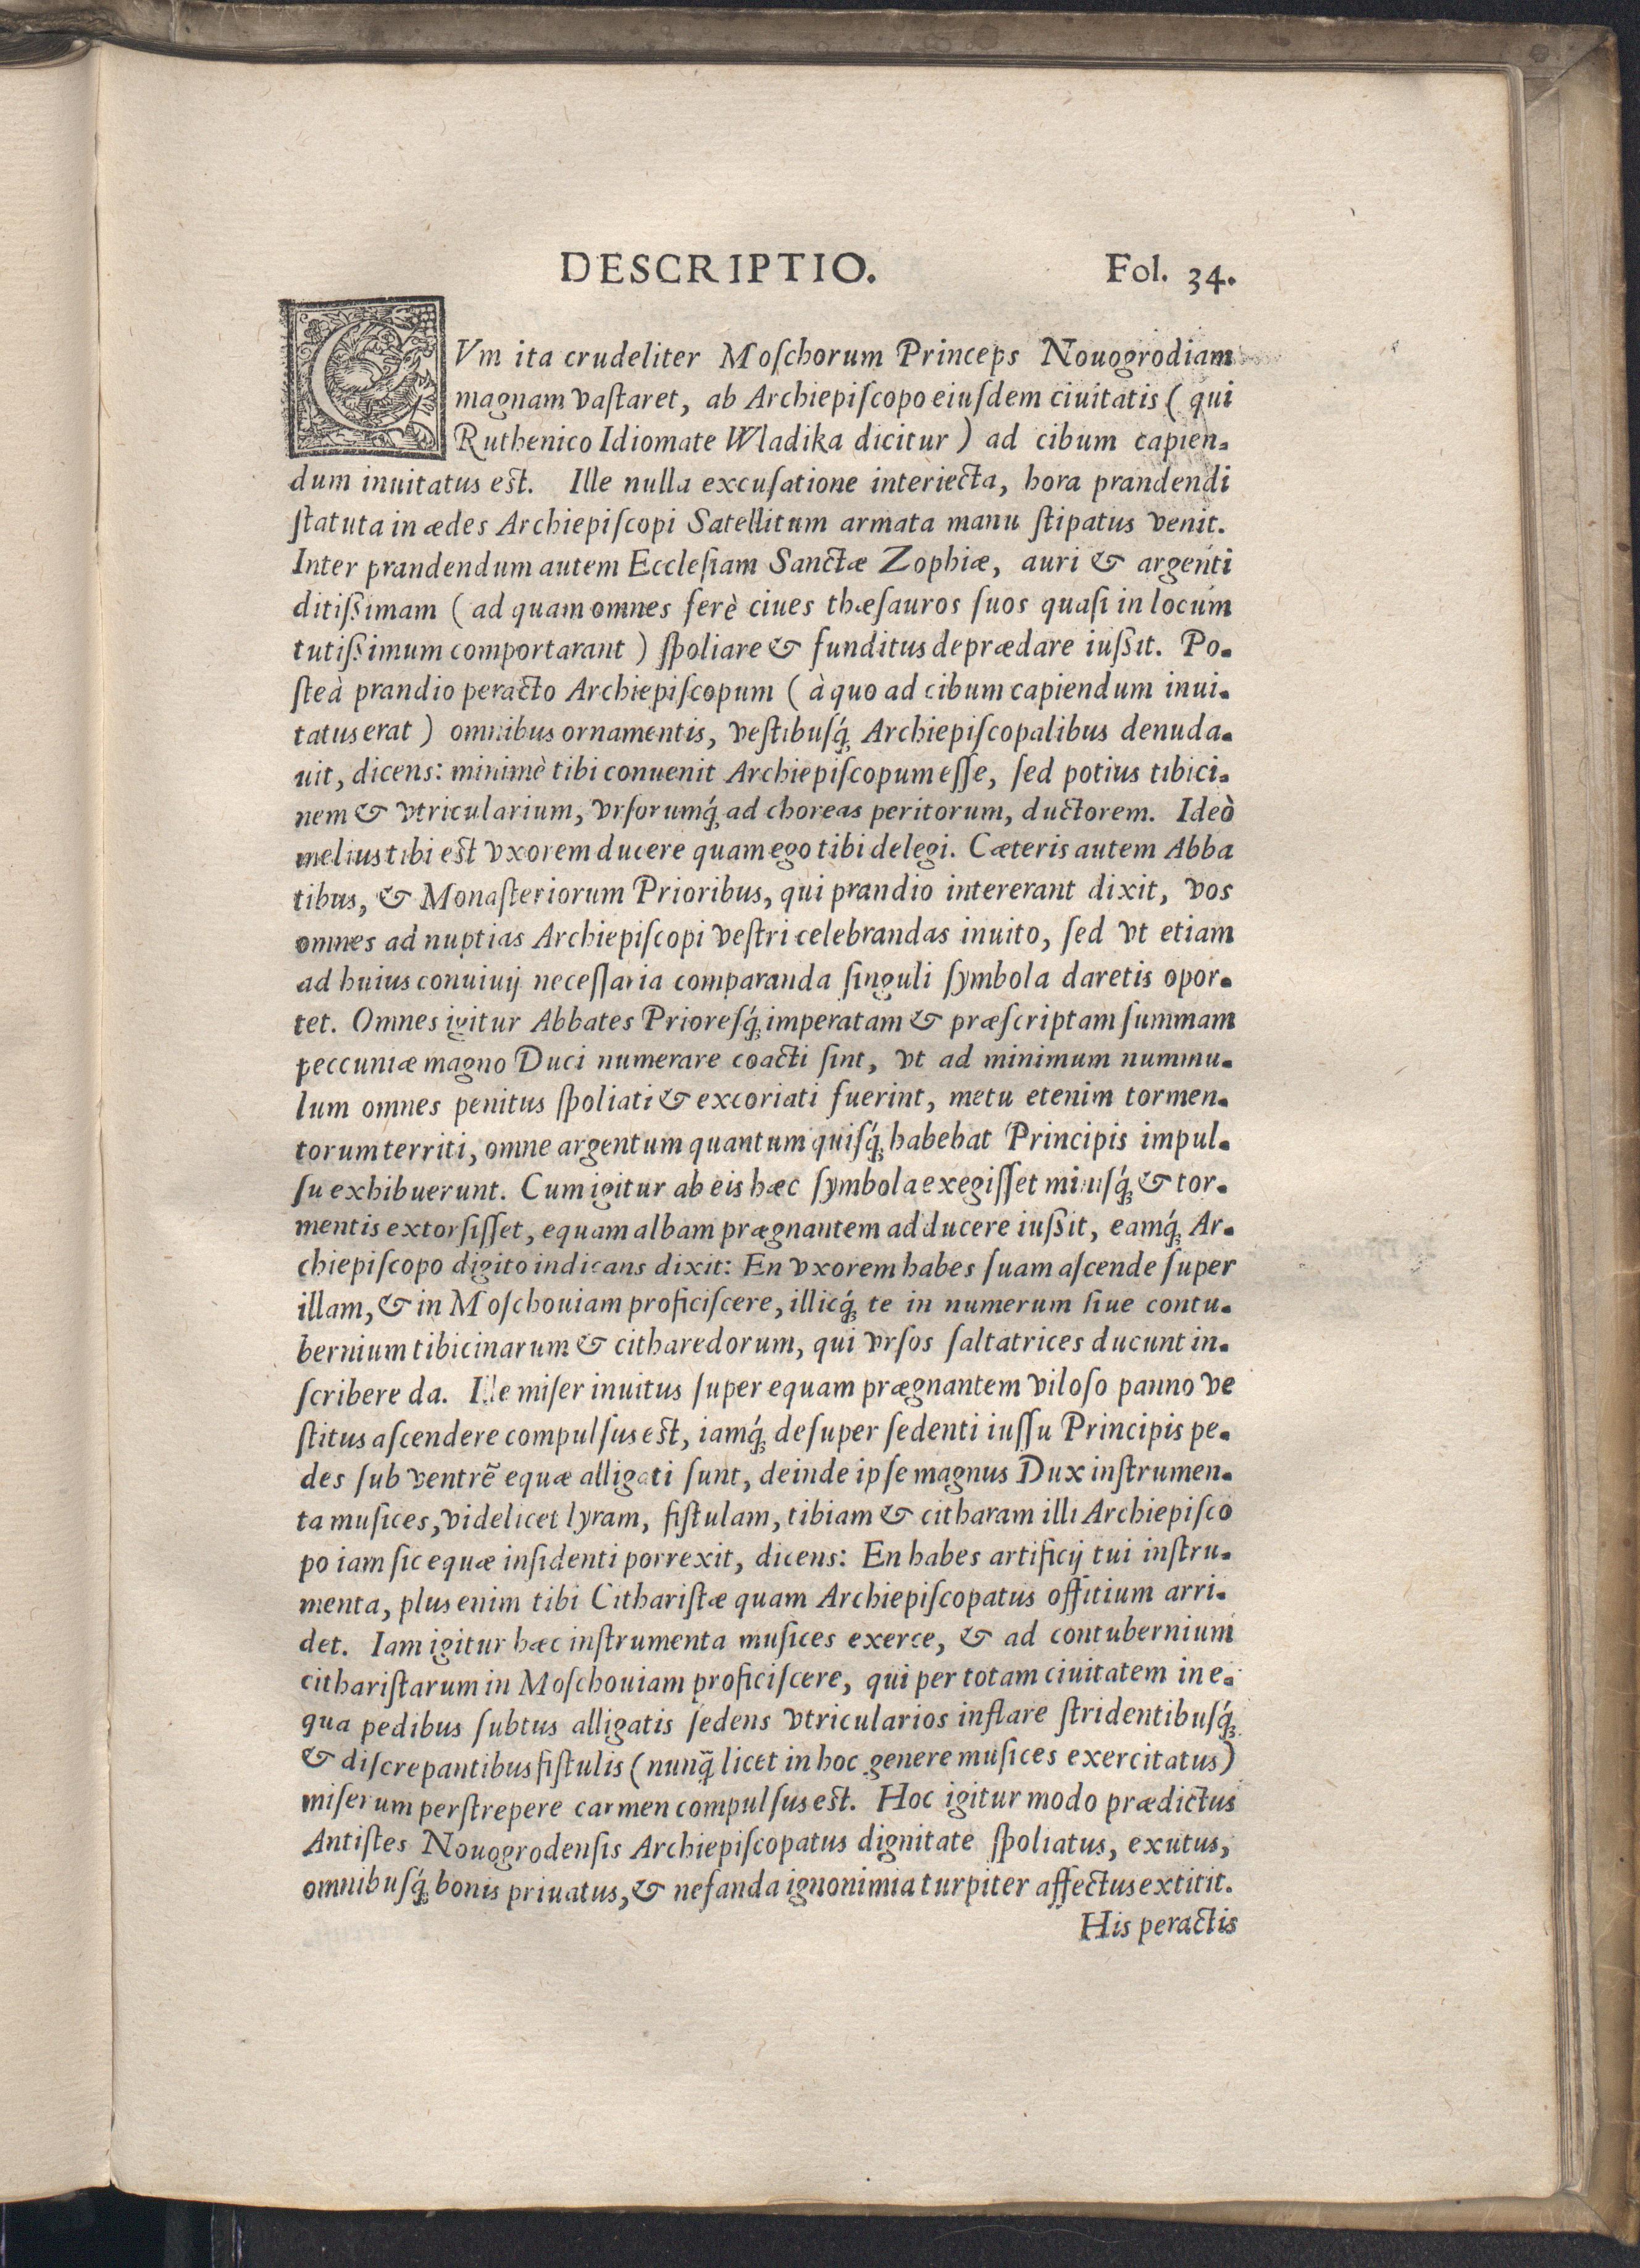 DESCRIPTIO. Fol. 34.
CVm ita crudeliter Moſchorum Princeps Nouogrodiam
magnam vaſtaret, ab Archiepiſcopo eiuſdem ciuitatis ( qui
Ruthenico Idiomate Wladika dicitur ) ad cibum capien-
dum inuitatus eſt. Ille nulla excuſatione interiecta, hora prandendi
ſtatuta in ædes Archiepiſcopi Satellitum armata manu ſtipatus venit.
Inter prandendum autem Eccleſiam Sanctæ Zophiæ, auri & argenti
ditiſsimam ( ad quam omnes ferè ciues thæſauros ſuos quaſi in locum
tutiſsimum comportarant ) ſpoliare & funditus deprædare iuſsit. Po-
ſteà prandio peracto Archiepiſcopum ( à quo ad cibum capiendum inui-
tatus erat ) omnibus ornamentis, veſtibuſq́ Archiepiſcopalibus denuda-
uit, dicens: minimè tibi conuenit Archiepiſcopum eſſe, ſed potius tibici-
nem & vtricularium, vrſorumq́ ad choreas peritorum, ductorem. Ideò
melius tibi eſt vxorem ducere quam ego tibi delegi. Cæteris autem Abba
tibus, & Monaſteriorum Prioribus, qui prandio intererant dixit, vos
omnes ad nuptias Archiepiſcopi veſtri celebrandas inuito, ſed vt etiam
ad huius conuiuij neceſſaria comparanda ſinguli ſymbola daretis opor-
tet. Omnes igitur Abbates Prioreſq́ imperatam & præſcriptam ſummam
peccuniæ magno Duci numerare coacti ſint, vt ad minimum nummu-
lum omnes penitus ſpoliati & excoriati fuerint, metu etenim tormen-
torum territi, omne argentum quantum quiſq́ habebat Principis impul-
ſu exhibuerunt. Cum igitur ab eis hæc ſymbola exegiſſet minuſq́ & tor-
mentis extorſiſſet, equam albam prægnantem adducere iuſsit, eamq́ Ar-
chiepiſcopo digito indicans dixit: En vxorem habes ſuam aſcende ſuper
illam, & in Moſchouiam proficiſcere, illicq́ te in numerum ſiue contu-
bernium tibicinarum & citharedorum, qui vrſos ſaltatrices ducunt in-
ſcribere da. Ille miſer inuitus ſuper equam prægnantem viloſo panno ve
ſtitus aſcendere compulſus eſt, iamq́ deſuper ſedenti iuſſu Principis pe-
des ſub ventrẽ equæ alligati ſunt, deinde ipſe magnus Dux inſtrumen-
ta muſices, videlicet lyram, fiſtulam, tibiam & citharam illi Archiepiſco
po iam ſic equæ inſidenti porrexit, dicens: En habes artificij tui inſtru-
menta, plus enim tibi Cithariſtæ quam Archiepiſcopatus offitium arri-
det. Iam igitur hæc inſtrumenta muſices exerce, & ad contubernium
cithariſtarum in Moſchouiam proficiſcere, qui per totam ciuitatem in e-
qua pedibus ſubtus alligatis ſedens vtricularios inflare ſtridentibuſq́
& diſcrepantibus fiſtulis ( nunq̃ licet in hoc genere muſices exercitatus )
miſerum perſtrepere carmen compulſus eſt. Hoc igitur modo prædictus
Antiſtes Nouogrodenſis Archiepiſcopatus dignitate ſpoliatus, exutus,
omnibuſq́ bonis priuatus, & nefanda ignonimia turpiter affectus extitit.
His peractis